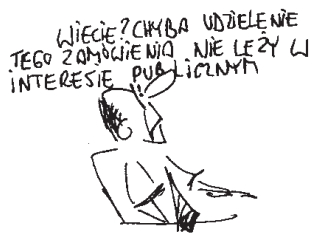 WIECIE? CHYBA UDZIELENIE
TEGO ZAMÓWIENIA NIE LEŻY W
INTERESIE PUBLICZNYM